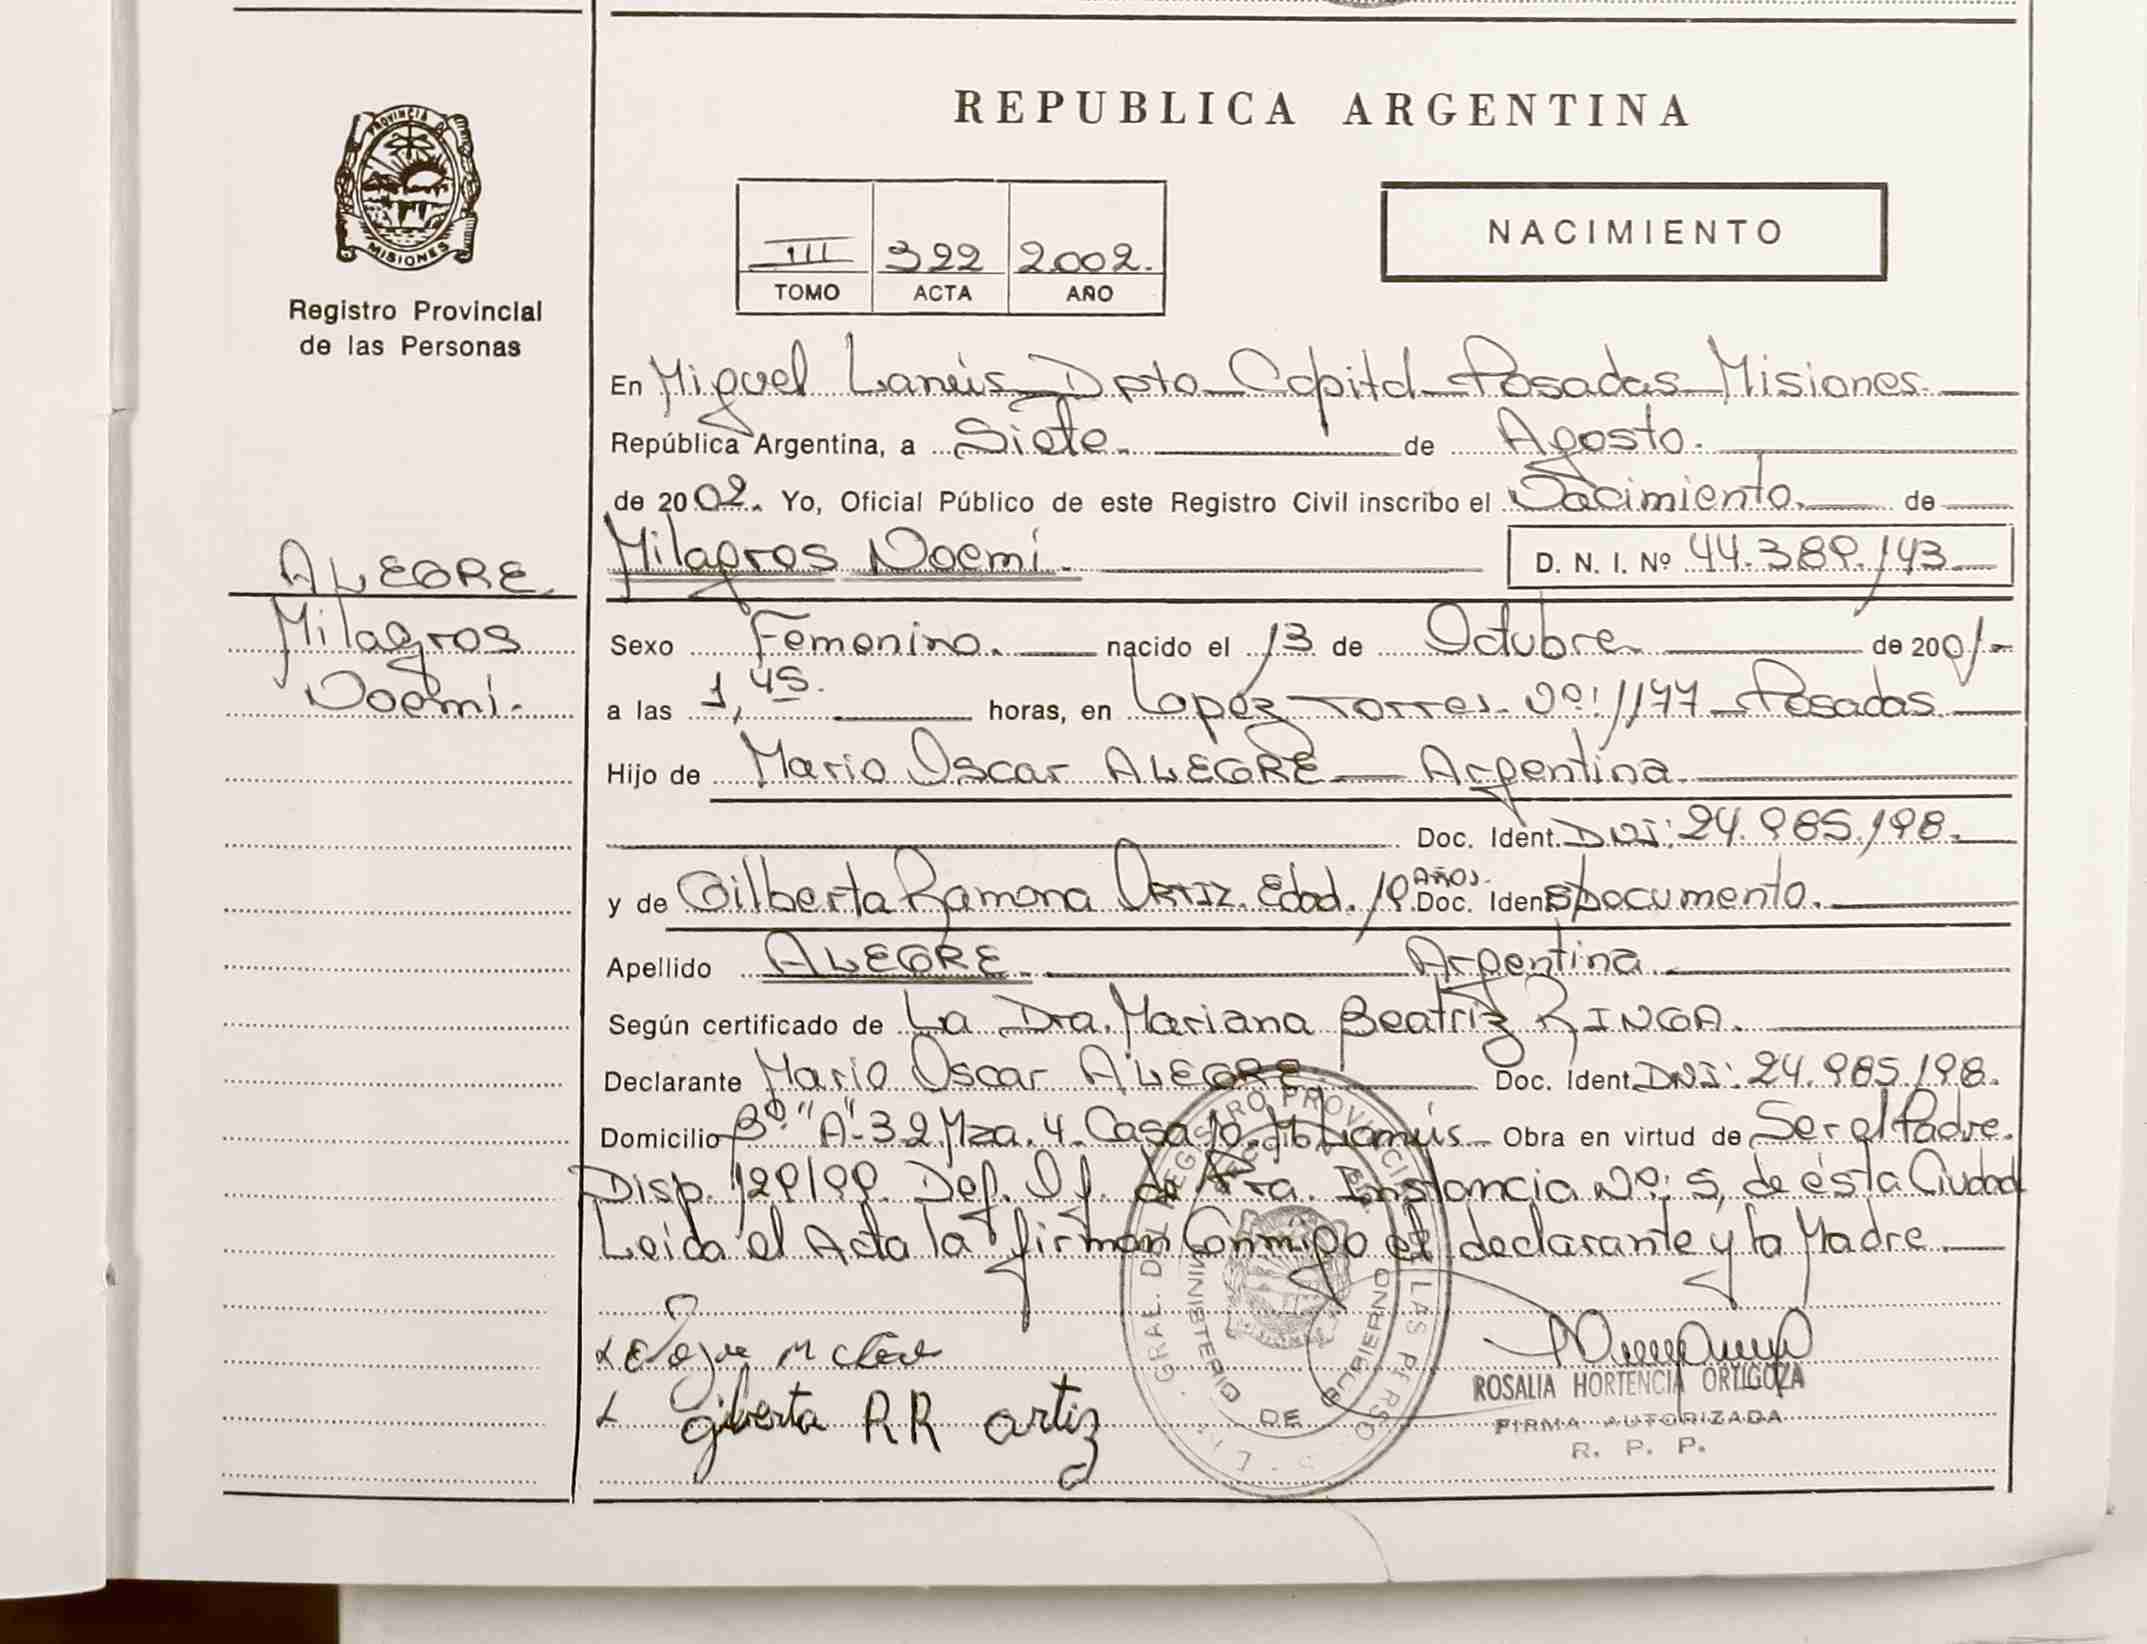 REPUBLICA ARGENTINA
PROVINCIA DE MISIONES
Registro Provincial
de las Personas
NACIMIENTO
III 322 2002.
TOMO ACTA AÑO
En Miguel Lanús Dpto Capital Posadas Misiones.
República Argentina, a Siete. de Agosto.
de 2002. Yo, Oficial Público de este Registro Civil inscribo el Nacimiento. de
Milagros Noemi. D. N. I. Nº 44.389.143
ALEGRE
Milagros
Noemí.
Sexo Femenino. nacido el 13 de Octubre de 2001
a las 1,45. horas, en Lopez Torres Nº: 1177 Posadas
Hijo de Mario Oscar ALEGRE Argentina
Doc. Ident. DNI: 24.985.198.
y de Gilberta Ramona ORTIZ. Edad. 19 AÑOS. Doc. Ident S/Documento.
Apellido ALEGRE Argentina
Según certificado de La Dra. Mariana Beatriz RINGA.
Declarante Mario Oscar ALEGRE Doc. Ident DNI: 24.985.198.
Domicilio Bº "A" 32 Mza. 4. Casa 10. M. Lanús Obra en virtud de Ser el Padre.
Disp. 129/99. Def. Of. de 1ra. Instancia Nº: 5, de ésta Ciudad
Leida el Acta la firman Conmigo el declarante y la Madre
gilberta RR ortiz
GRAL. DEL REGISTRO PROVINCIAL DE LAS PERSO
MINISTERIO DE GOBIERNO
ROSALIA HORTENCIA ORTIGOZA
FIRMA AUTORIZADA
R. P. P.